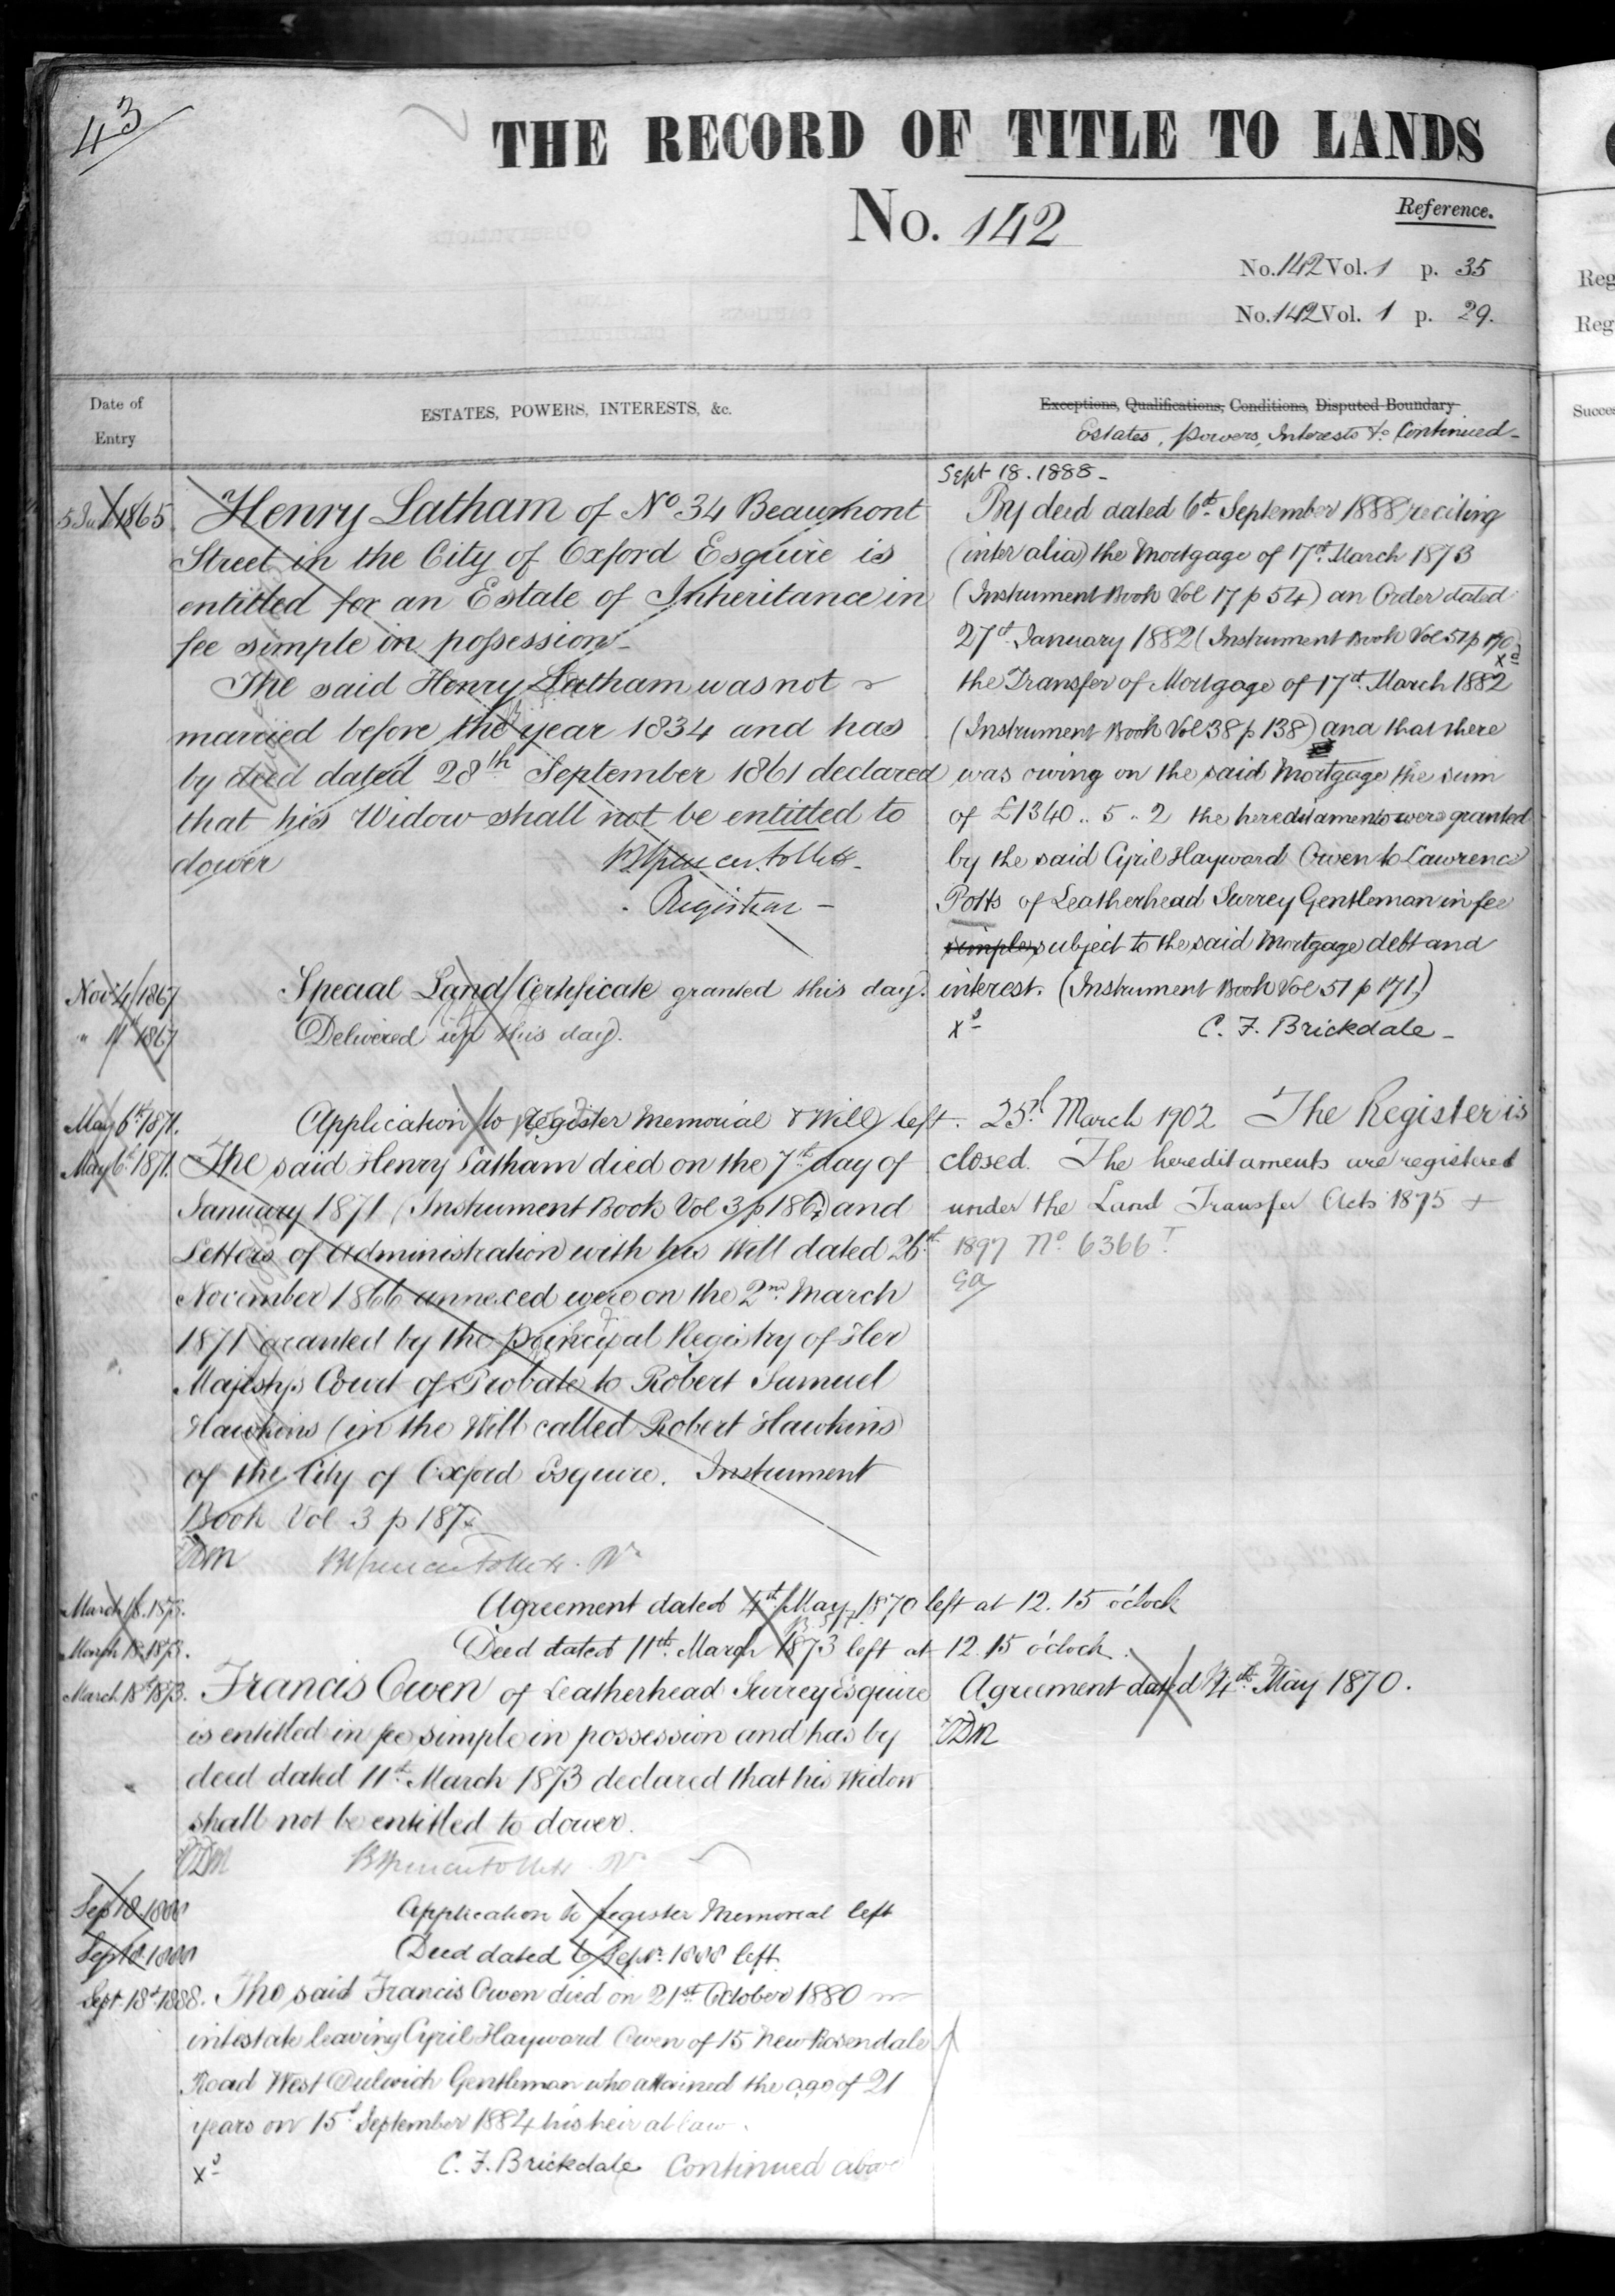 43
THE RECORD OF TITLE TO LANDS
No. 142
Reference.
No. 142 Vol. 1 p. 35
No. 142 Vol. 1 p. 29.
Date of
Entry
ESTATES, POWERS, INTERESTS, &c.
Exceptions, Qualifications, Conditions, Disputed Boundary
Estates, Powers, Interests &c Continued -
1865
Henry Latham of No 34 Beaumont
Street in the City of Oxford Esquire is
entitled for an Estate of Inheritance in
fee simple in possession -
The said Henry Latham was not
married before the year 1834 and has
by deed dated 28th September 1861 declared
that his Widow shall not be entitled to
dower
Registrar -
Nov 4/1867 Special Land Certificate granted this day.
" 11th 1867 Delivered up this day.
May 6th 1871. Application to register Memorial & Will left.
May 6th 1871. The said Henry Latham died on the 7th day of
January 1871 (Instrument Book Vol 3 p 186) and
Letters of Administration with his Will dated 26th
November 1866 annexed were on the 2nd March
1871 granted by the principal Registry of Her
Majesty's Court of Probate to Robert Samuel
Hawkins (in the Will called Robert Hawkins)
of the City of Oxford Esquire. Instrument
Book Vol 3 p 187
March 18. 1873. Agreement dated 4th May 1870 left at 12.15 o'clock
March 18. 1873. Deed dated 11th March 1873 left at 12.15 o'clock.
March 18th 1873. Francis Owen of Leatherhead Surrey Esquire
is entitled in fee simple in possession and has by
deed dated 11th March 1873 declared that his Widow
shall not be entitled to dower.
Sep 18 1888 Application to register Memorial left
Sep 18 1888 Deed dated 6 Sepr. 1888 left.
Sept 18th 1888. The said Francis Owen died on 21st October 1880
intestate leaving Cyril Hayward Owen of 15 New Rosendale
Road West Dulwich Gentleman who attained the age of 21
years on 15th September 1884 his heir at law.
C. F. Brickdale Continued above
Sept 18. 1888 -
By deed dated 6th September 1888 reciting
(inter alia) the Mortgage of 17th March 1873
(Instrument Book Vol 17 p 54) an Order dated
27th January 1882 (Instrument Book Vol 51 p 170)
the Transfer of Mortgage of 17th March 1882
(Instrument Book Vol 38 p 138) and that there
was owing on the said Mortgage the sum
of £1340 .. 5 .. 2 the hereditaments were granted
by the said Cyril Hayward Owen to Lawrence
Potts of Leatherhead Surrey Gentleman in fee
simple subject to the said Mortgage debt and
interest. (Instrument Book Vol 51 p 171)
C. F. Brickdale -
25th March 1902 The Register is
closed. The hereditaments are registered
under the Land Transfer Acts 1875 +
1897 No 6366
Agreement dated 4th May 1870.
Reg
Reg
Succes